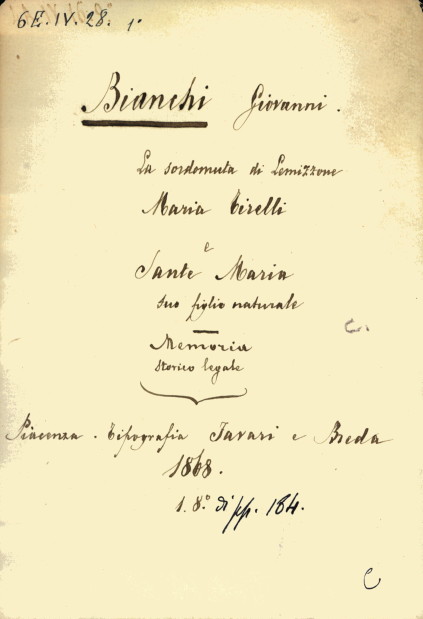 6E.IV.28. 1º
Bianchi Giovanni.
La sordomuta di Lemizzone
Maria Tirelli
e
Sante Maria
suo figlio naturale
Memoria
storico legale
Piacenza. Tipografia Tavari e Breda
1868.
1. 8.º di pp. 184.
C.
C